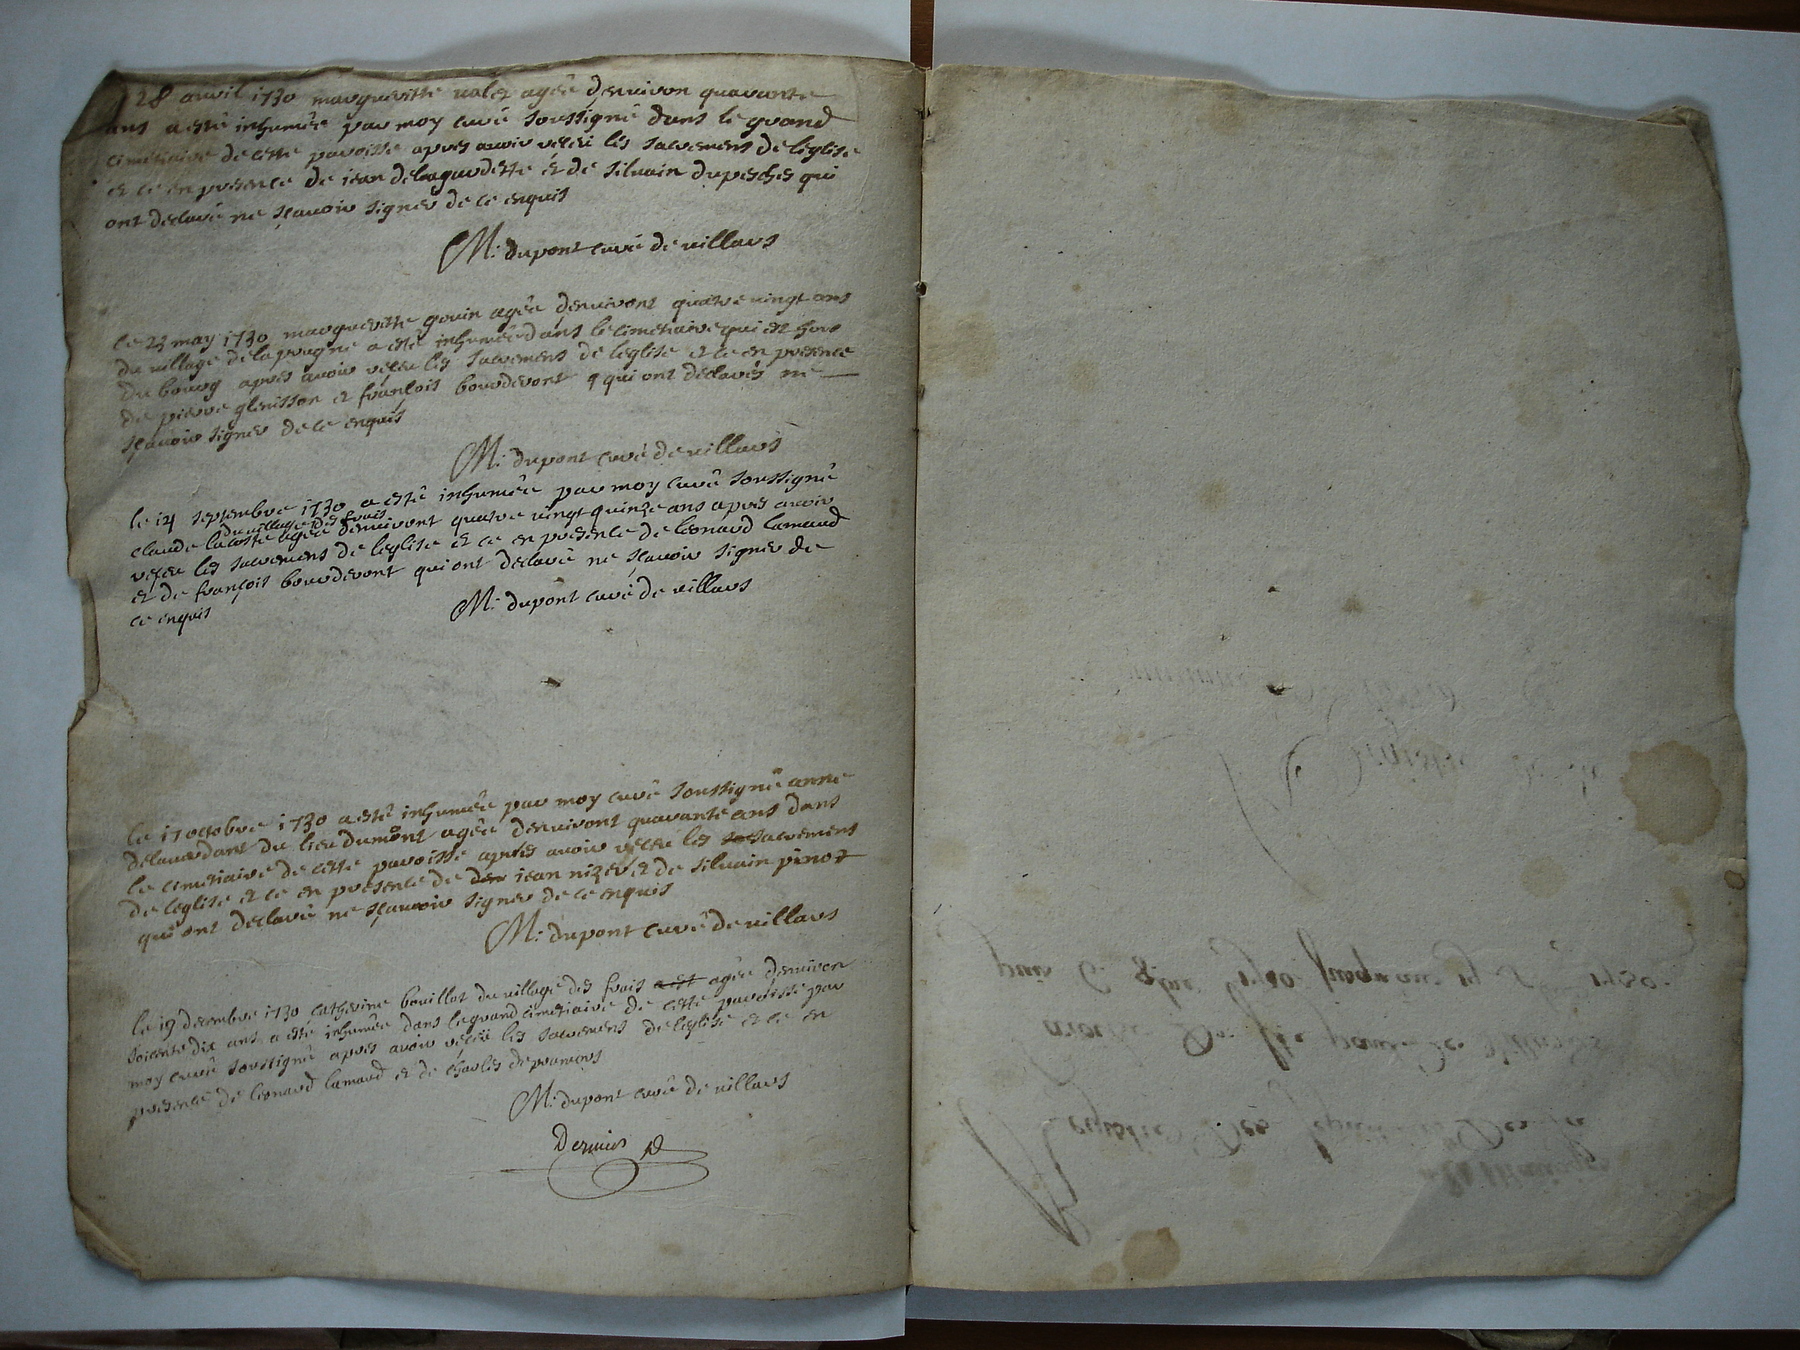 28 avril 1730 margueritte valet agée denviron quarante
ans a esté inhumée par moy curé soussigné dans le grand
cimetiaire de cette paroisse apres avoir reçeu les sacremens de leglise
et ce en presence de iean delagardette et de silvain dupeschés qui
ont declaré ne sçavoir signer de ce enquis
M: dupont curé de villars
le 23 may 1730 margueritte gouin agée denviront quatre vingt ans
du village de la prugne a esté inhumée dans le cimetiaire qui est hors
du bourg apres avoir reçeu les sacremens de leglise et ce en presence
de pierre glenisson et françois bourderont qui ont declarés ne
sçavoir signer de ce enquis
M: dupont curé de villars
le 14 septembre 1730 a esté inhumée par moy curé soussigné
du village des frais
claude lacoste agée denviront quatre vingt quinze ans apres avoir
reçeu les sacremens de leglise et ce en presence de leonard lamaud
et de françois bourderont qui ont declaré ne sçavoir signer de
ce enquis
M: dupont curé de villars
le 17 octobre 1730 a esté inhumée par moy curé soussigné anne
delavordant du lieu dumont agée denviront quarante ans dans
le cimetiaire de cette paroisse apres avoir reçeu les sacrement
de leglise et ce en presence de iean nizer et de silvain pinot
qui ont declaré ne sçavoir signer de ce enquis
M: dupont curé de villars
le 19 decembre 1730 catherine bouillot du village des frais a est agée denviron
soicente dix ans a esté inhumée dans le grand cimetiaire de cette paroisse par
moy curé soussigné apres avoir reçeü les sacremens de leglise et ce en
presence de leonard lamaud et de charles depramons
M: dupont curé de villars
Dernier